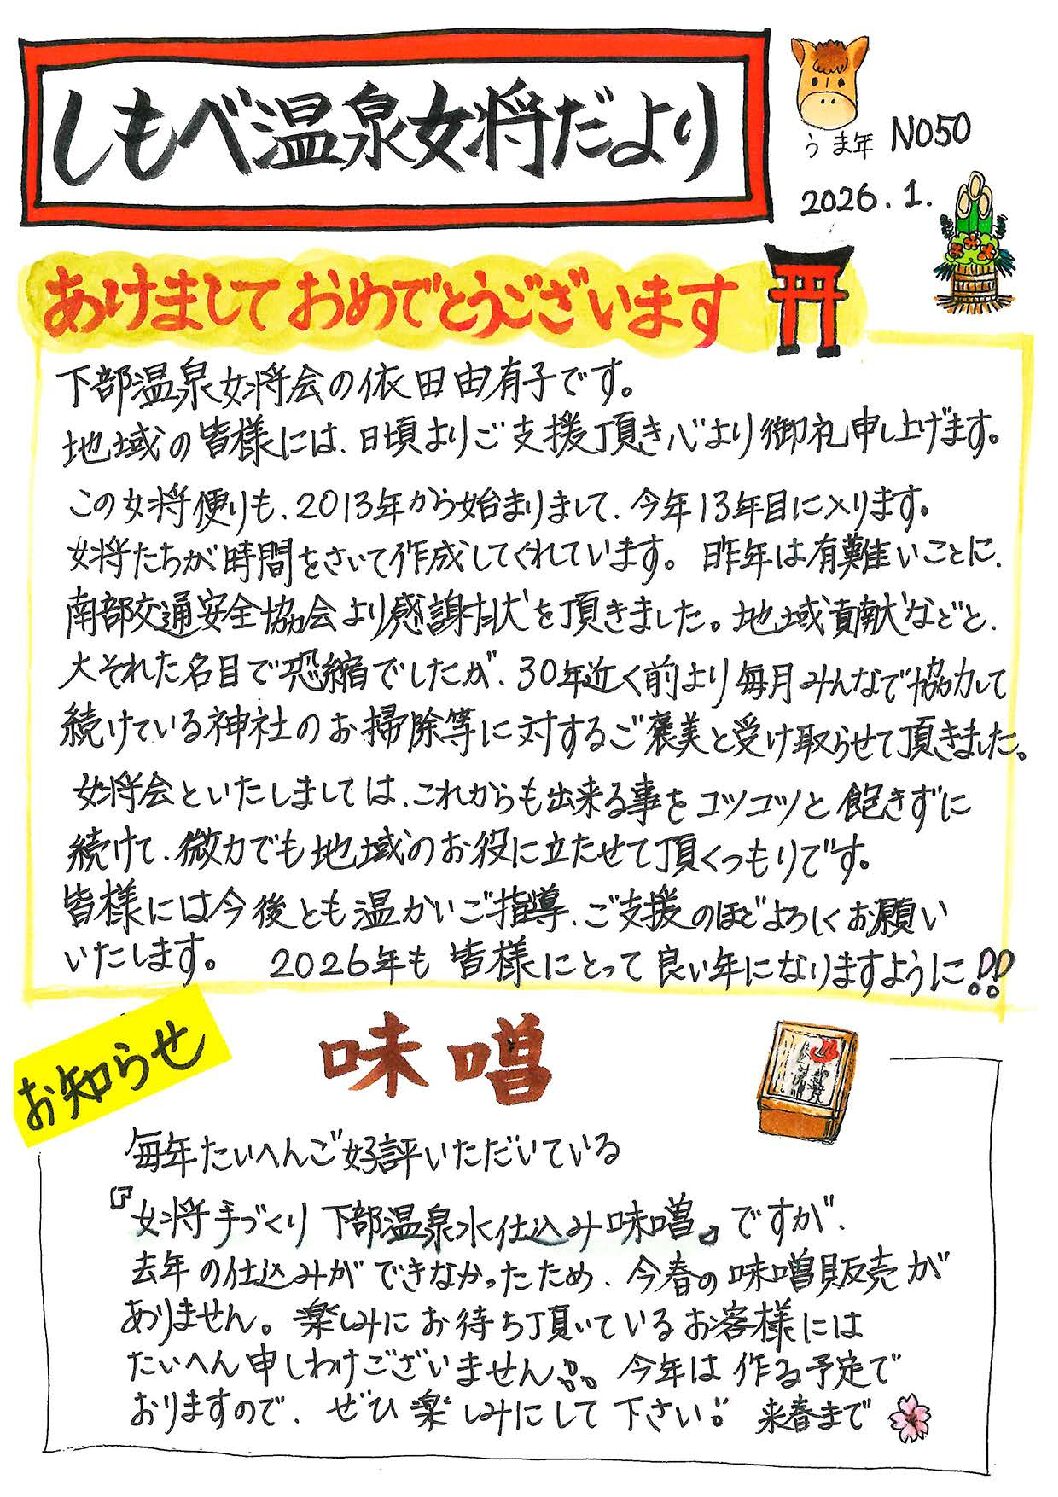 しもべ温泉女将だより
うま年 NO50
2026.1.
あけましておめでとうございます
下部温泉女将会の依田由有子です。
地域の皆様には、日頃よりご支援頂き心より御礼申し上げます。
この女将便りも、2013年から始まりまして、今年13年目に入ります。
女将たちが時間をさいて作成してくれています。昨年は有難いことに、
南部交通安全協会より感謝状を頂きました。地域貢献などと、
大それた名目で恐縮でしたが、30年近く前より毎月みんなで協力して
続けている神社のお掃除等に対するご褒美と受け取らせて頂きました。
女将会といたしましては、これからも出来る事をコツコツと飽きずに
続けて、微力でも地域のお役に立たせて頂くつもりです。
皆様には今後とも温かいご指導、ご支援のほどよろしくお願い
いたします。 2026年も皆様にとって良い年になりますように!!
お知らせ
味噌
毎年たいへんご好評いただいている
『女将手づくり下部温泉水仕込み味噌』ですが、
去年の仕込みができなかったため、今春の味噌販売が
ありません。楽しみにお待ち頂いているお客様には
たいへん申しわけございません!!。今年は作る予定で
おりますので、ぜひ楽しみにして下さい!! 来春まで